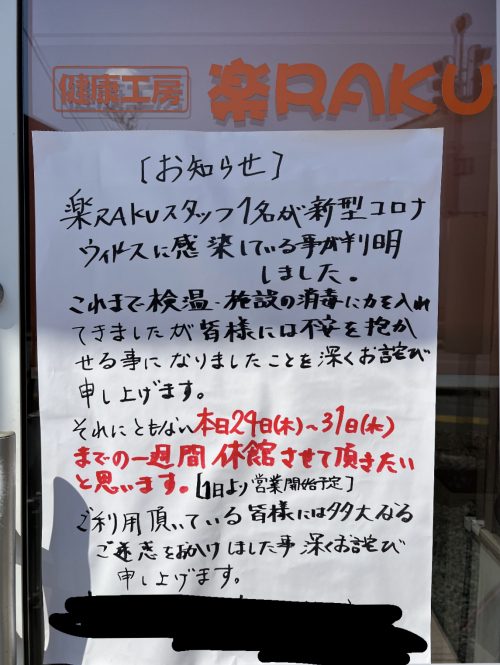 健康工房 楽RAKU
[お知らせ]
楽RAKUスタッフ1名が新型コロナ
ウィルスに感染している事が判明
しました。
これまで検温・施設の消毒に力を入れ
てきましたが皆様には不安を抱か
せる事になりましたことを深くお詫び
申し上げます。
それにともない本日24日(木)～31日(木)
までの一週間休館させて頂きたい
と思います。[1日より営業開始予定]
ご利用頂いている皆様には多大なる
ご迷惑をお掛けしました事深くお詫び
申し上げます。